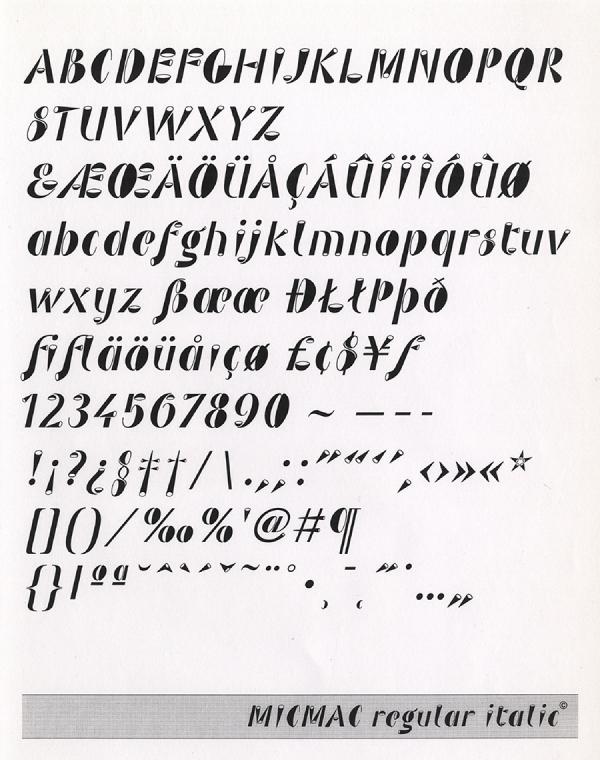 ABCDEFGHIJKLMNOPQR
STUVWXYZ
&ÆŒÄÖÜÅÇÁÛÍÏÎÓÙØ
abcdefghijklmnopqrstuv
wxyz ßæœ ÐŁłÞþð
ﬁﬂäöüåıçø £¢$¥ƒ
1234567890 ~ — – -
!¡?¿§‡†/\.,„:;"“‘’,‹›»«*
[]()⁄‰%'@#¶
{}|ºª˘ˆ`´ˇ~¨°•¸¯˛˝˙…„
MICMAC regular italic©